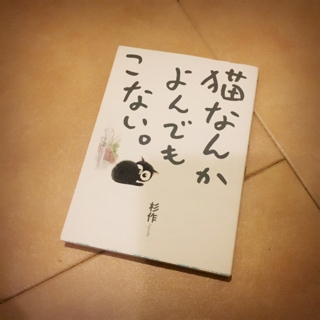 猫なんか
よんでも
こない。
杉作